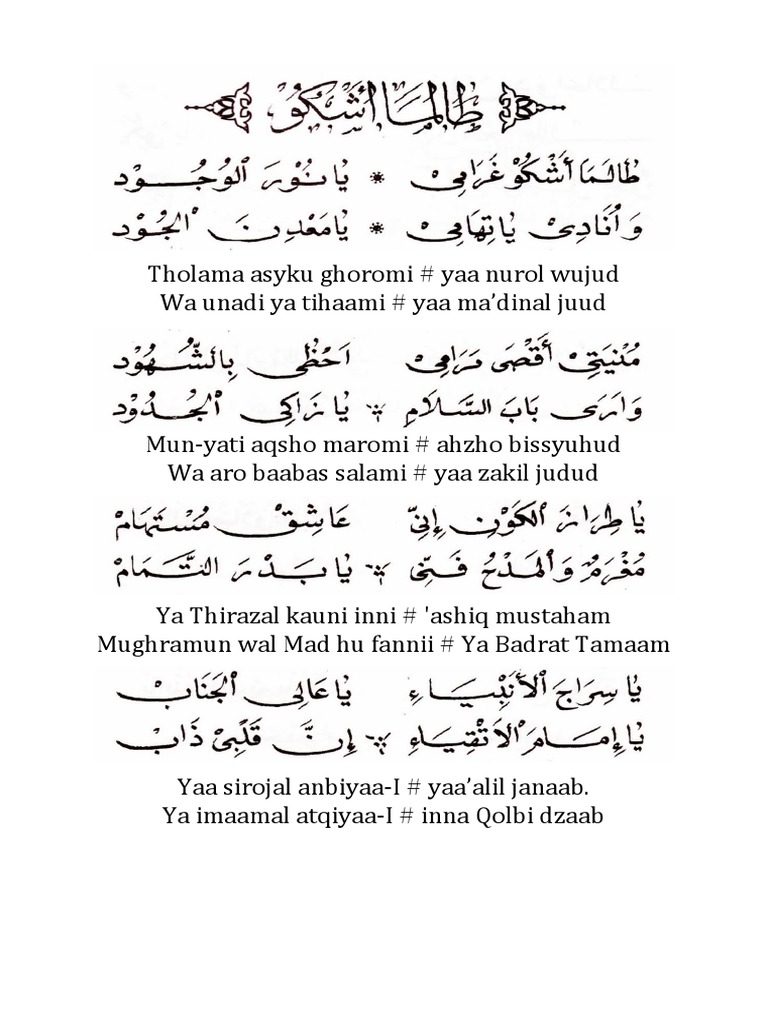 طَالَمَا أَشْكُوْ
طَالَمَا أَشْكُوْ غَرَامِيْ * يَا نُوْرَ الْوُجُوْدْ
وَأُنَادِيْ يَا تِهَامِيْ * يَا مَعْدِنَ الْجُوْدْ
Tholama asyku ghoromi # yaa nurol wujud
Wa unadi ya tihaami # yaa ma’dinal juud
مُنْيَتِيْ أَقْصَى مَرَامِيْ اَحْظَى بِالشُّهُوْدْ
وَارَى بَابَ السَّلَامِ * يَا زَاكِى الْجُدُوْدْ
Mun-yati aqsho maromi # ahzho bissyuhud
Wa aro baabas salami # yaa zakil judud
يَا طِرَازَ الْكَوْنِ إِنِّيْ عَاشِقْ مُسْتَهَامْ
مُغْرَمٌ وَالْمَدْحُ فَنِّى * يَا بَدْرَ التَّمَامْ
Ya Thirazal kauni inni # 'ashiq mustaham
Mughramun wal Mad hu fannii # Ya Badrat Tamaam
يَا سِرَاجَ الْأَنْبِيَاءِ يَا عَالِى الْجَنَابْ
يَا إِمَامَ الْاَتْقِيَاءِ * إِنَّ قَلْبِيْ ذَابْ
Yaa sirojal anbiyaa-I # yaa’alil janaab.
Ya imaamal atqiyaa-I # inna Qolbi dzaab